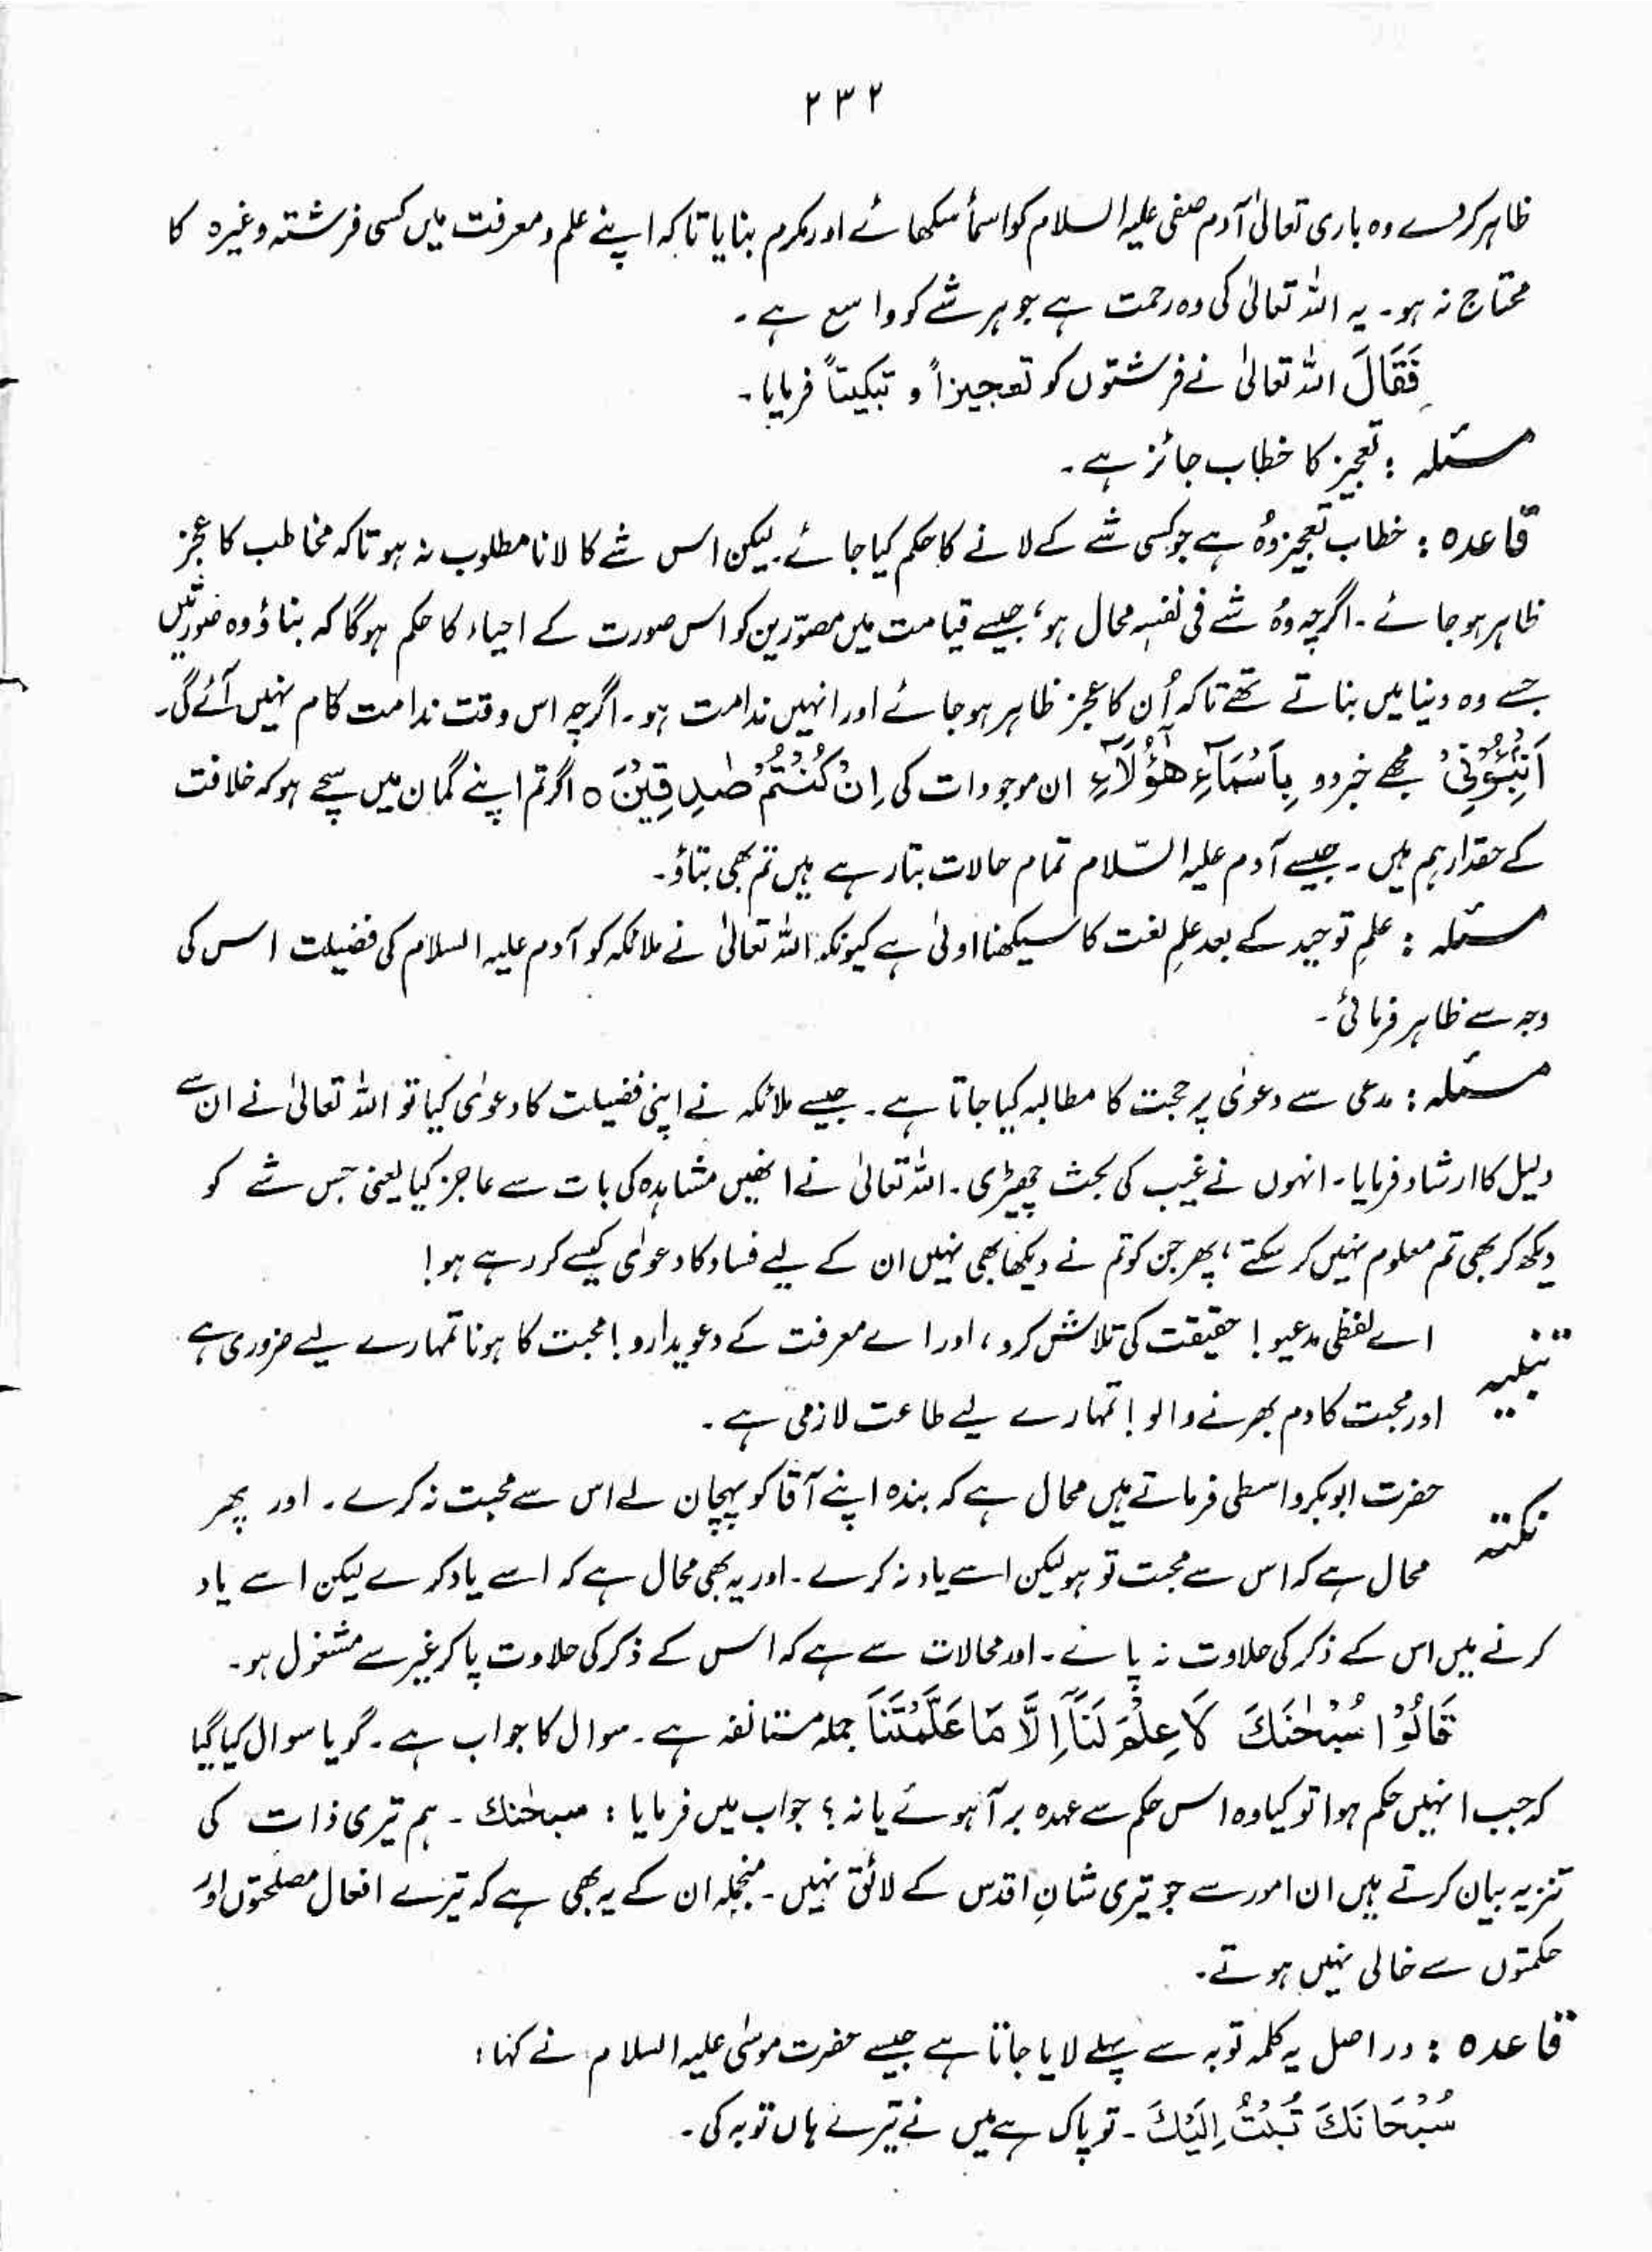 ۲۳۲
ظاہر کرے وہ باری تعالیٰ آدم صفی علیہ السلام کو اسمأ سکھائے اور مکرم بنایا تاکہ اپنے علم و معرفت میں کسی فرشتہ وغیرہ کا
محتاج نہ ہو۔ یہ اللہ تعالیٰ کی وہ رحمت ہے جو ہر شے کو واسع ہے۔
فَقَالَ اللہ تعالیٰ نے فرشتوں کو تعجیزاً و تبکیتاً فرمایا۔
مسئلہ : تعجیز کا خطاب جائز ہے۔
قاعدہ : خطاب تعجیز وُہ ہے جو کسی شے کے لانے کا حکم کیا جائے لیکن اس شے کا لانا مطلوب نہ ہو تاکہ مخاطب کا عجز
ظاہر ہو جائے۔ اگرچہ وُہ شے فی نفسہٖ محال ہو، جیسے قیامت میں مصوّرین کو اس صورت کے احیاء کا حکم ہوگا کہ بناؤ وہ صورتیں
جسے وہ دنیا میں بناتے تھے تاکہ اُن کا عجز ظاہر ہو جائے اور انہیں ندامت ہو۔ اگرچہ اس وقت ندامت کام نہیں آئے گی۔
اَنْبِئُوْنِیْ مجھے خبر دو بِاَسْمَآءِ ھٰٓؤُلَآءِ ان موجودات کی اِنْ کُنْتُمْ صٰدِقِیْنَ ہ اگر تم اپنے گمان میں سچے ہو کہ خلافت
کے حقدار ہم ہیں۔ جیسے آدم علیہ السّلام تمام حالات بتا رہے ہیں تم بھی بتاؤ۔
مسئلہ : علمِ توحید کے بعد علمِ لغت کا سیکھنا اولیٰ ہے کیونکہ اللہ تعالیٰ نے ملائکہ کو آدم علیہ السلام کی فضیلت اس کی
وجہ سے ظاہر فرمائی۔
مسئلہ : مدعی سے دعویٰ پر حجت کا مطالبہ کیا جاتا ہے۔ جیسے ملائکہ نے اپنی فضیلت کا دعوٰی کیا تو اللہ تعالیٰ نے ان سے
دلیل کا ارشاد فرمایا۔ انہوں نے غیب کی بحث چھیڑی۔ اللہ تعالیٰ نے انھیں مشاہدہ کی بات سے عاجز کیا یعنی جس شے کو
دیکھ کر بھی تم معلوم نہیں کر سکتے، پھر جن کو تم نے دیکھا بھی نہیں ان کے لیے فساد کا دعوٰی کیسے کر رہے ہو!
تنبیہ اے لفظی مدعیو! حقیقت کی تلاش کرو، اور اے معرفت کے دعویدارو! محبت کا ہونا تمہارے لیے ضروری ہے
اور محبت کا دم بھرنے والو! تمہارے لیے طاعت لازمی ہے۔
نکتہ حضرت ابوبکر واسطی فرماتے ہیں محال ہے کہ بندہ اپنے آقا کو پہچان لے اس سے محبت نہ کرے۔ اور پھر
محال ہے کہ اس سے محبت تو ہو لیکن اسے یاد نہ کرے۔ اور یہ بھی محال ہے کہ اسے یاد کرے لیکن اسے یاد
کرنے میں اس کے ذکر کی حلاوت نہ پائے۔ اور محالات سے ہے کہ اس کے ذکر کی حلاوت پا کر غیر سے مشغول ہو۔
قَالُوْا سُبْحٰنَكَ لَا عِلْمَ لَنَآ اِلَّا مَا عَلَّمْتَنَا جملہ مستانفہ ہے۔ سوال کا جواب ہے۔ گویا سوال کیا گیا
کہ جب انہیں حکم ہوا تو کیا وہ اس حکم سے عہدہ برآ ہوئے یا نہ؟ جواب میں فرمایا : سبحٰنك۔ ہم تیری ذات کی
تنزیہ بیان کرتے ہیں ان امور سے جو تیری شانِ اقدس کے لائق نہیں۔ منجملہ ان کے یہ بھی ہے کہ تیرے افعال مصلحتوں اور
حکمتوں سے خالی نہیں ہوتے۔
قاعدہ : در اصل یہ کلمہ توبہ سے پہلے لایا جاتا ہے جیسے حضرت موسٰی علیہ السلام نے کہا :
سُبْحَانَكَ تُبْتُ اِلَیْكَ۔ تو پاک ہے میں نے تیرے ہاں توبہ کی۔